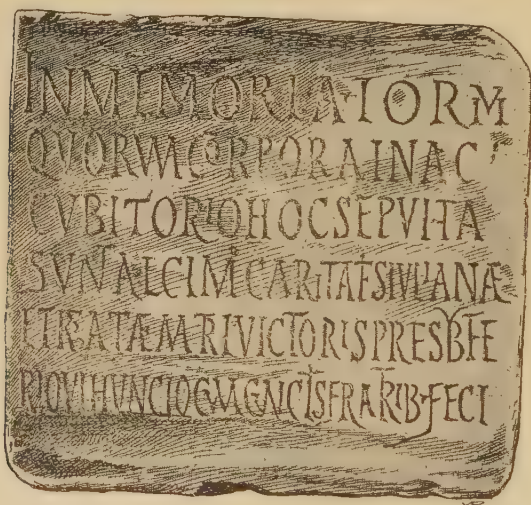 INMEMORIA·IORM
QVORVMCORPORAINAC
CVBITORIOHOCSEPVLTA
SVNTALCIMICARITATISIVLIANÆ
ETRGATÆMATRIVICTORISPRESBYTE
RIQVIHVNCLOCVMCVNCTISFRATRIB·FECI